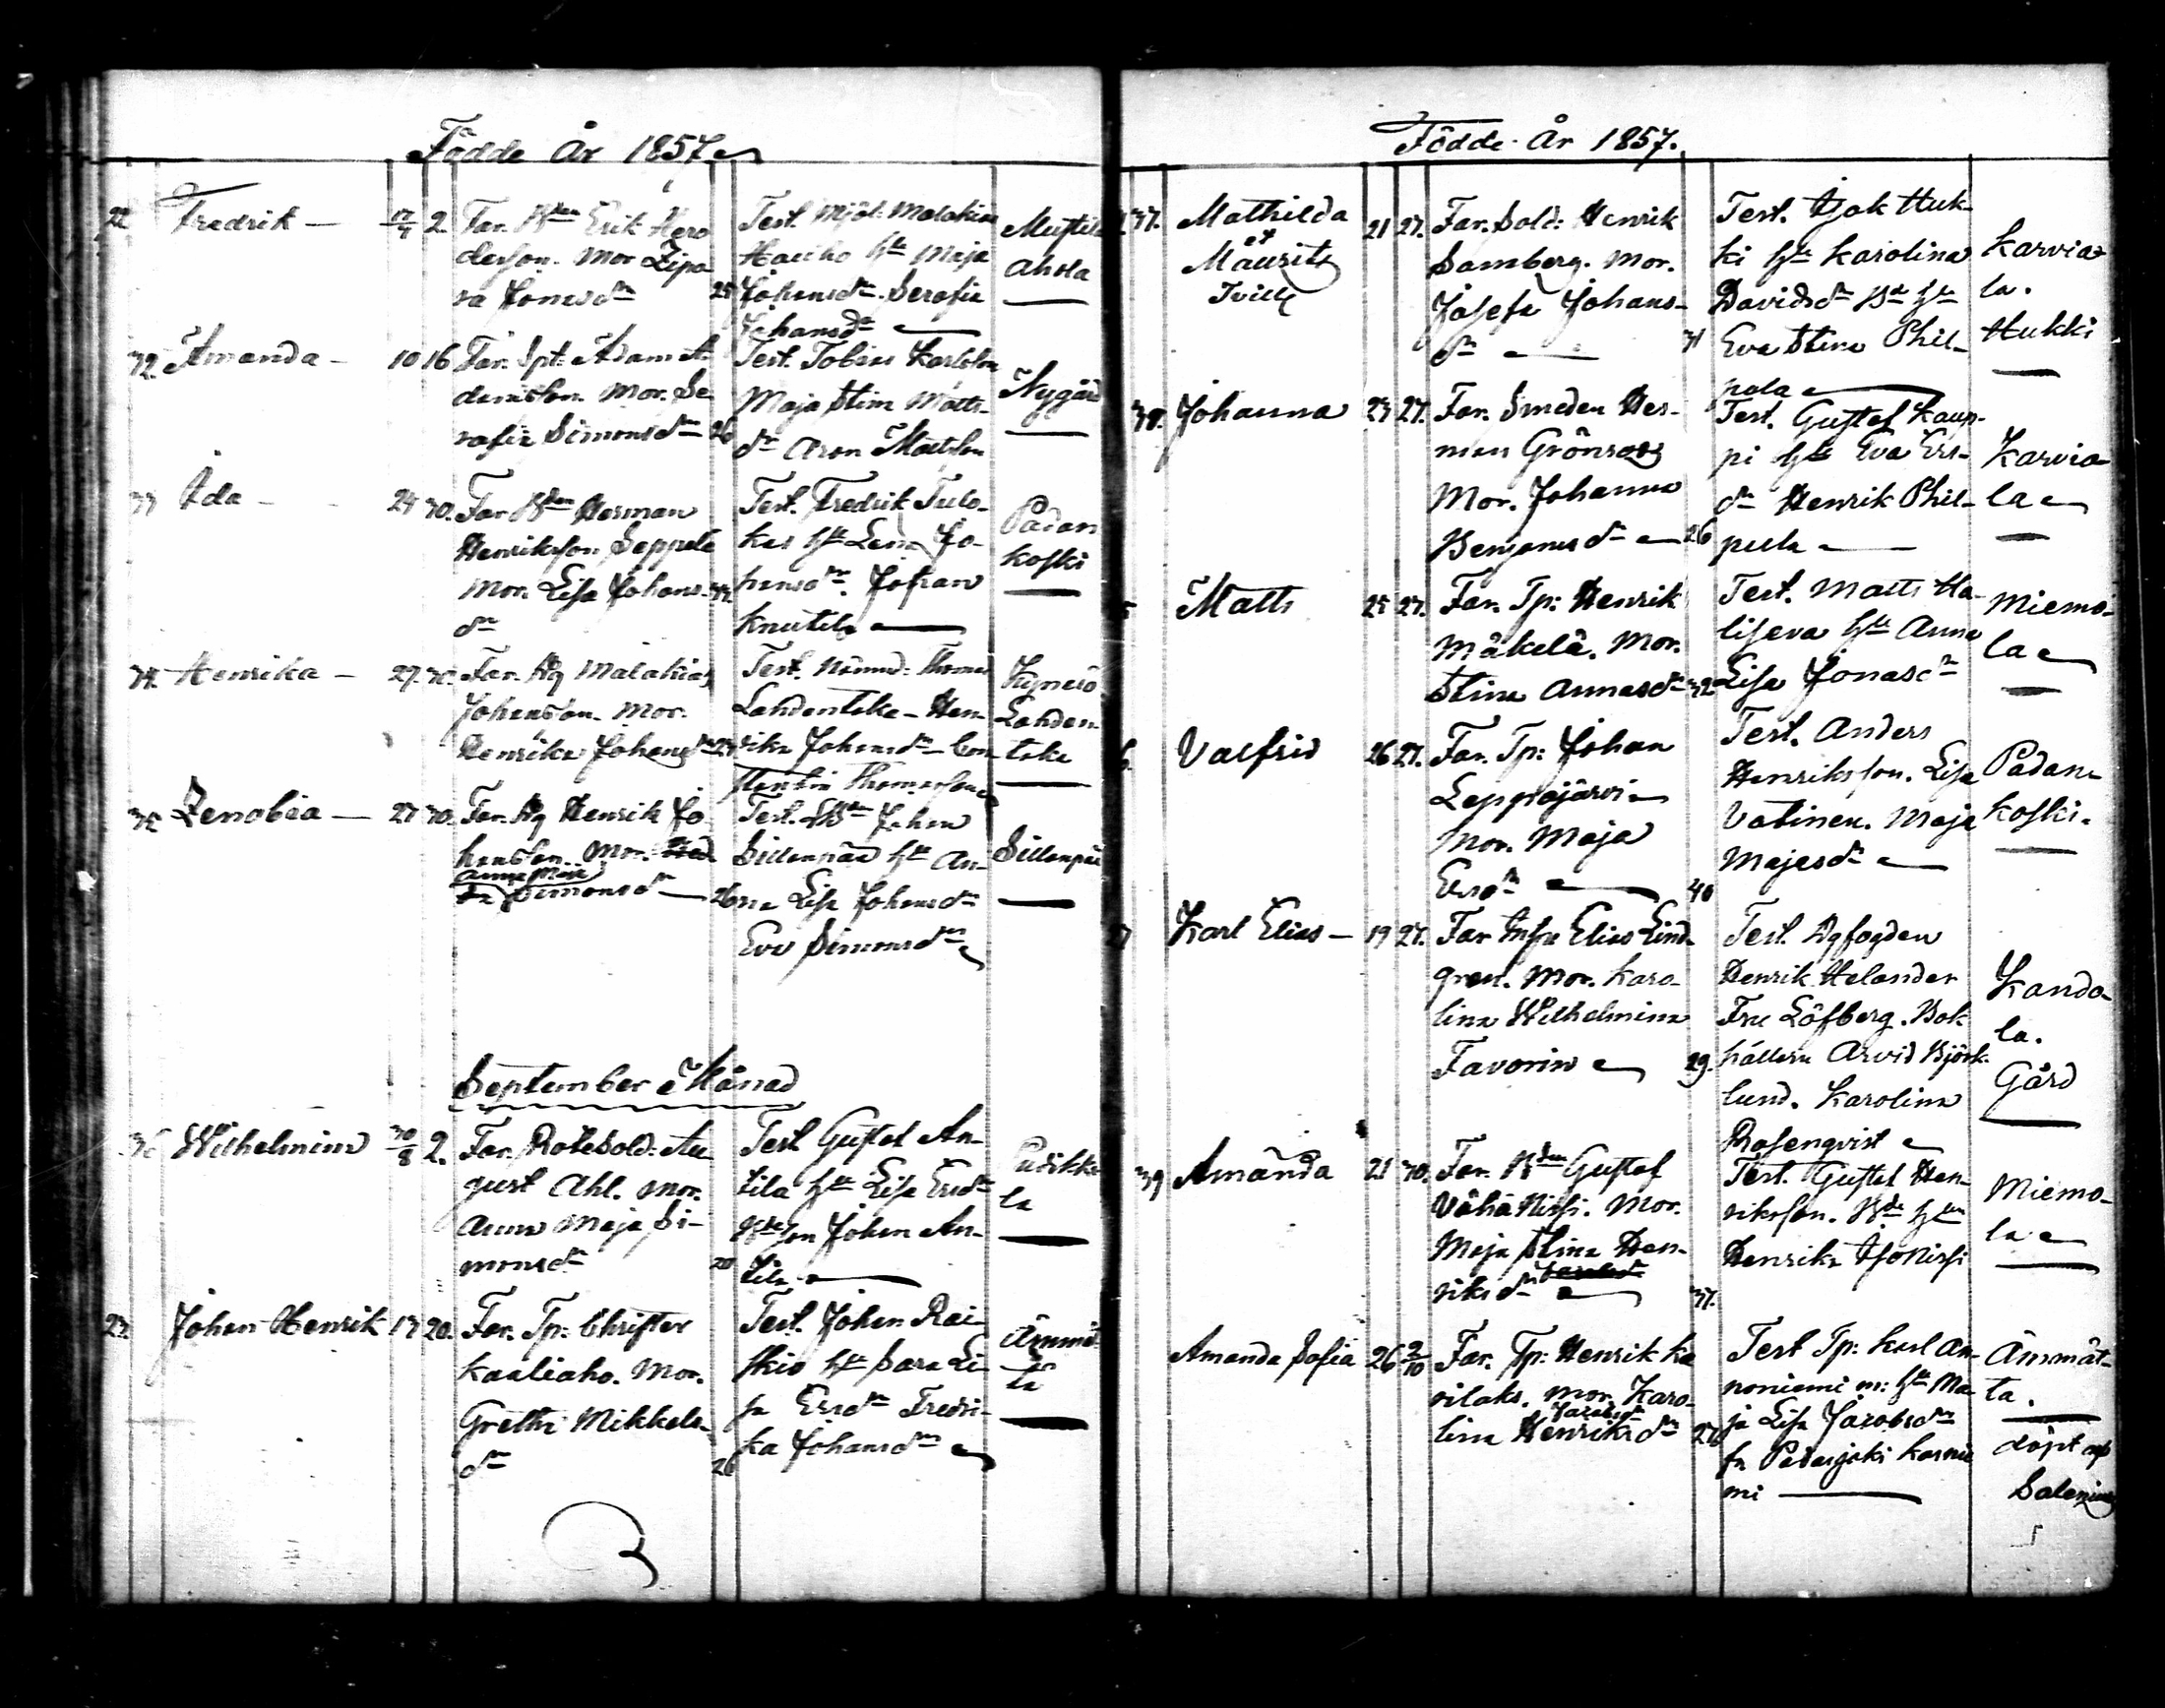 Födde År 1857.
22 Fredrik — 17/7 2. Far. Bden Erik Hero
desson. Mor Zipo
ra Jonasdr 25
Test. Mjöl: Malakias
Hauiko hstr Maja
Johansdr. Serafia
Johansdr —
Mustila
Ahola
32 Amanda — 10 16 Far. Spt: Adam A
damsson. Mor. Se
rafia Simonsdr 26
Test. Tobias Karlsson
Maja Stina Matts-
dr Aron Mattsson
Nygård
33 Ida — 24 30. Far Bden Herman
Henriksson Seppälä
Mor. Lisa Johans-
dr
Test. Fredrik Tulo-
kas hstr Lena Jo-
hansdr. Johan
Knutila —
Padan
koski
34. Henrika — 27. 30. Far. Ag Malakias
Johansson. Mor.
Henrika Johansdr 24
Test. Nämnd: Thomas
Lahdentaka — Hen-
rika Johansdr — Con
stantin Thomasson
Kynärö
Lahden-
taka
35 Zenobia — 27 30. Far. Ag Henrik Jo-
hansson. Mor. Hed
Anna Maja
da Simonsdr — 26
Test. Bden Johan
Sillanpää hstr An-
na Lisa Johansdr
Eva Simonsdr
Sillanpää
September Månad
36 Wilhelmina 30/8 2. Far. Rotesold: Au
gust Ahl. Mor.
Anna Maja Si-
monsdr 20
Test Gustaf An-
tila hstr Lisa Ersdr
Bdeson Johan An-
tila —
Pusikka
la
23. Johan Henrik 13 20. Far. Tp: Christer
Kaaliaho. Mor.
Gretha Mikkels-
dr 26
Test. Johan Rai-
skio hstr Sara Li-
sa Ersdr Fredri-
ka Johansdr
Ämmät
ta
Födde År 1857.
37. Mathilda
et
Maurits
Tvill
21 27. Far. Sold: Henrik
Samberg. Mor.
Josefa Johans-
dr — 31
Test. Isak Huk-
ki hstr Karolina
Davidsdr Bde hstr
Eva Stina Phil-
pula
Karvia-
la.
Hukki
38. Johanna 23 27. Far. Smeden Her-
man Grönroos
Mor. Johanna
Benjamsdr — 26
Test. Gustaf Kaup-
pi hstr Eva Ers-
dr Henrik Phil-
pula —
Karvia-
la
Matts 25 27. Far. Tp: Henrik
Mäkelä. Mor.
Stina Annasdr 32
Test. Matts Ha-
liseva hstr Anna
Lisa Jonasdr
Miemo-
la
Valfrid 26 27. Far. Tp: Johan
Leppäjärvi
Mor. Maja
Ersdr 40
Test. Anders
Henriksson. Lisa
Vatinen. Maja
Majasdr
Padan-
koski.
Karl Elias — 19 27. Far Insp Elias Lind-
gren. Mor. Karo-
lina Wilhelmina
Favorin 29.
Test. Agfogden
Henrik Helander
Fru Löfberg. Bok
hållern Arvid Björk-
lund. Karolina
Rosenqvist
Kando-
la.
Gård
39 Amanda 21 30. Far. Bden Gustaf
Vähä Nissi. Mor.
Maja Stina Hen-
riksdr 37.
Test. Gustaf Hen-
riksson. Bde hstr
Henrika Iso Nissi
Miemo-
la
Amanda Sofia 26 2/10 Far. Tp: Henrik Ka
vilaks. Mor. Karo-
Jacobsdr
lina Henriksdr 27
Test Tp: Karl An-
noniemi m: hstr Ma-
ja Lisa Jacobsdr
fr Padasjoki Karnie
mi —
Ämmät-
ta.
döpt af
Salenius